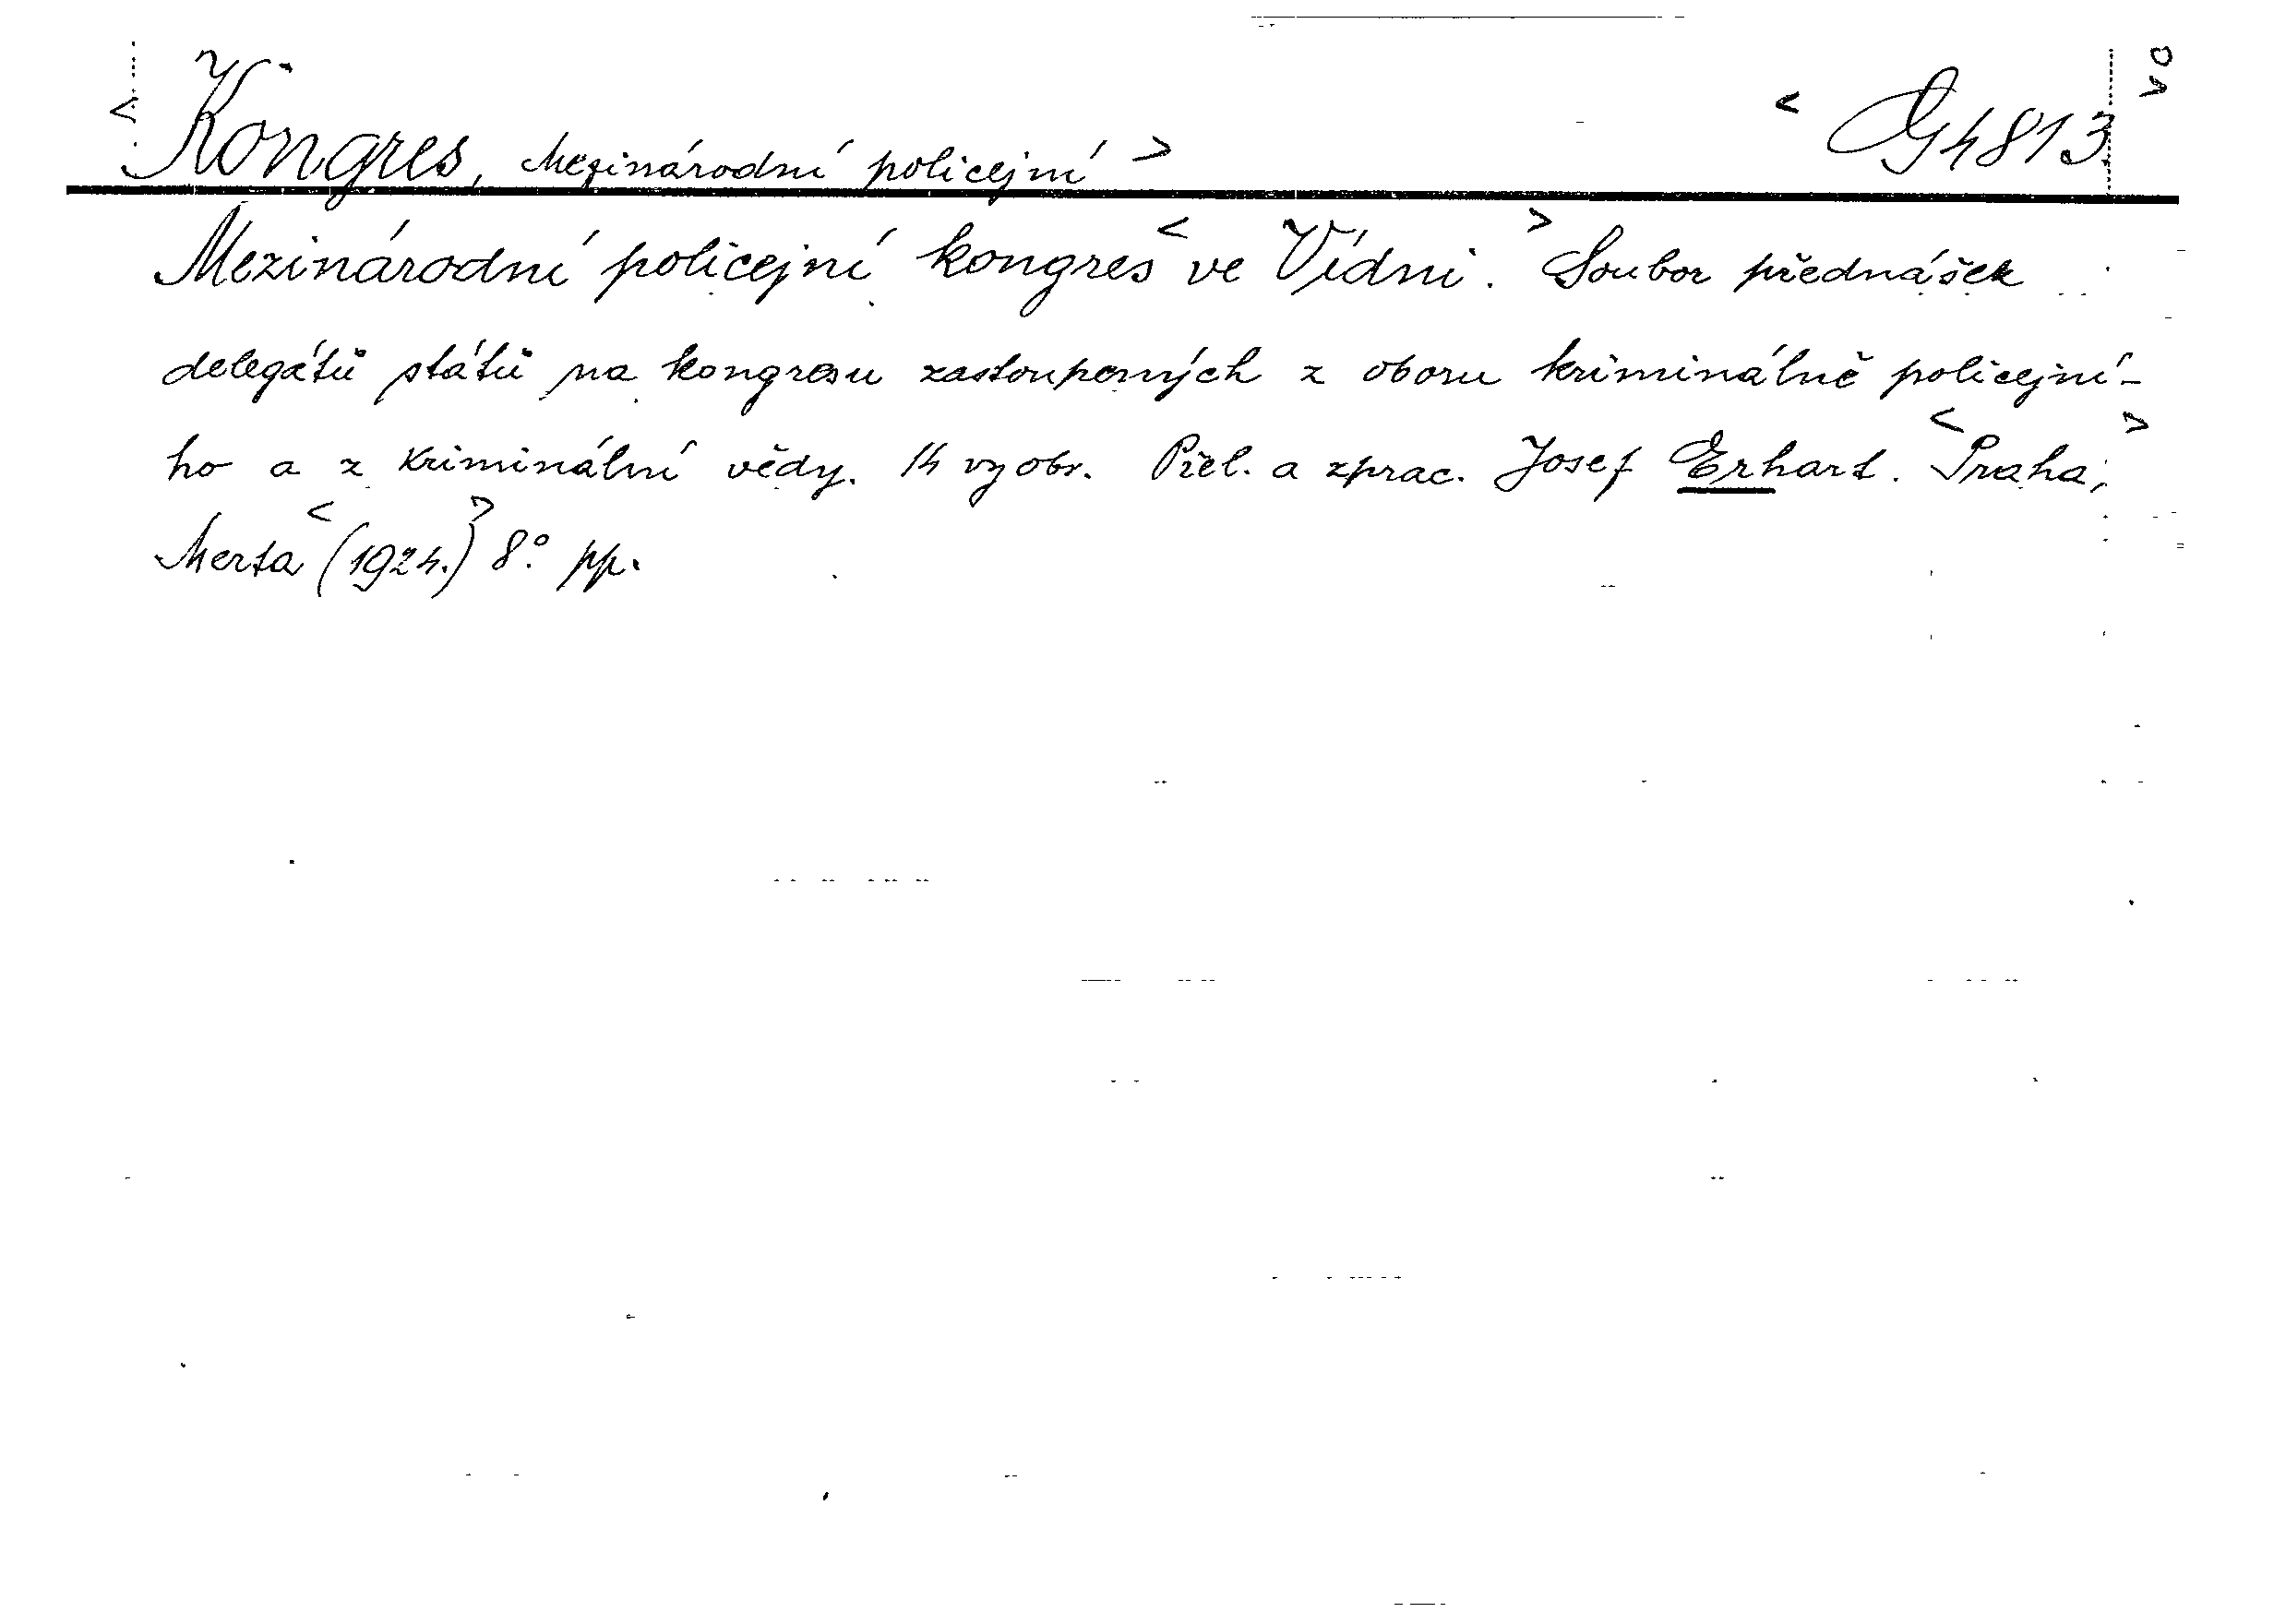 <Kongres, Mezinárodní policejní> <G 4813
Mezinárodní policejní kongres <ve Vídni.> Soubor přednášek
delegátů států na kongresu zastoupených z oboru kriminálně policejní-
ho a z kriminální vědy. 14 vyobr. Přel. a zprac. Josef Erhart. <Praha,>
Merta <(1924.)> 8° pp.